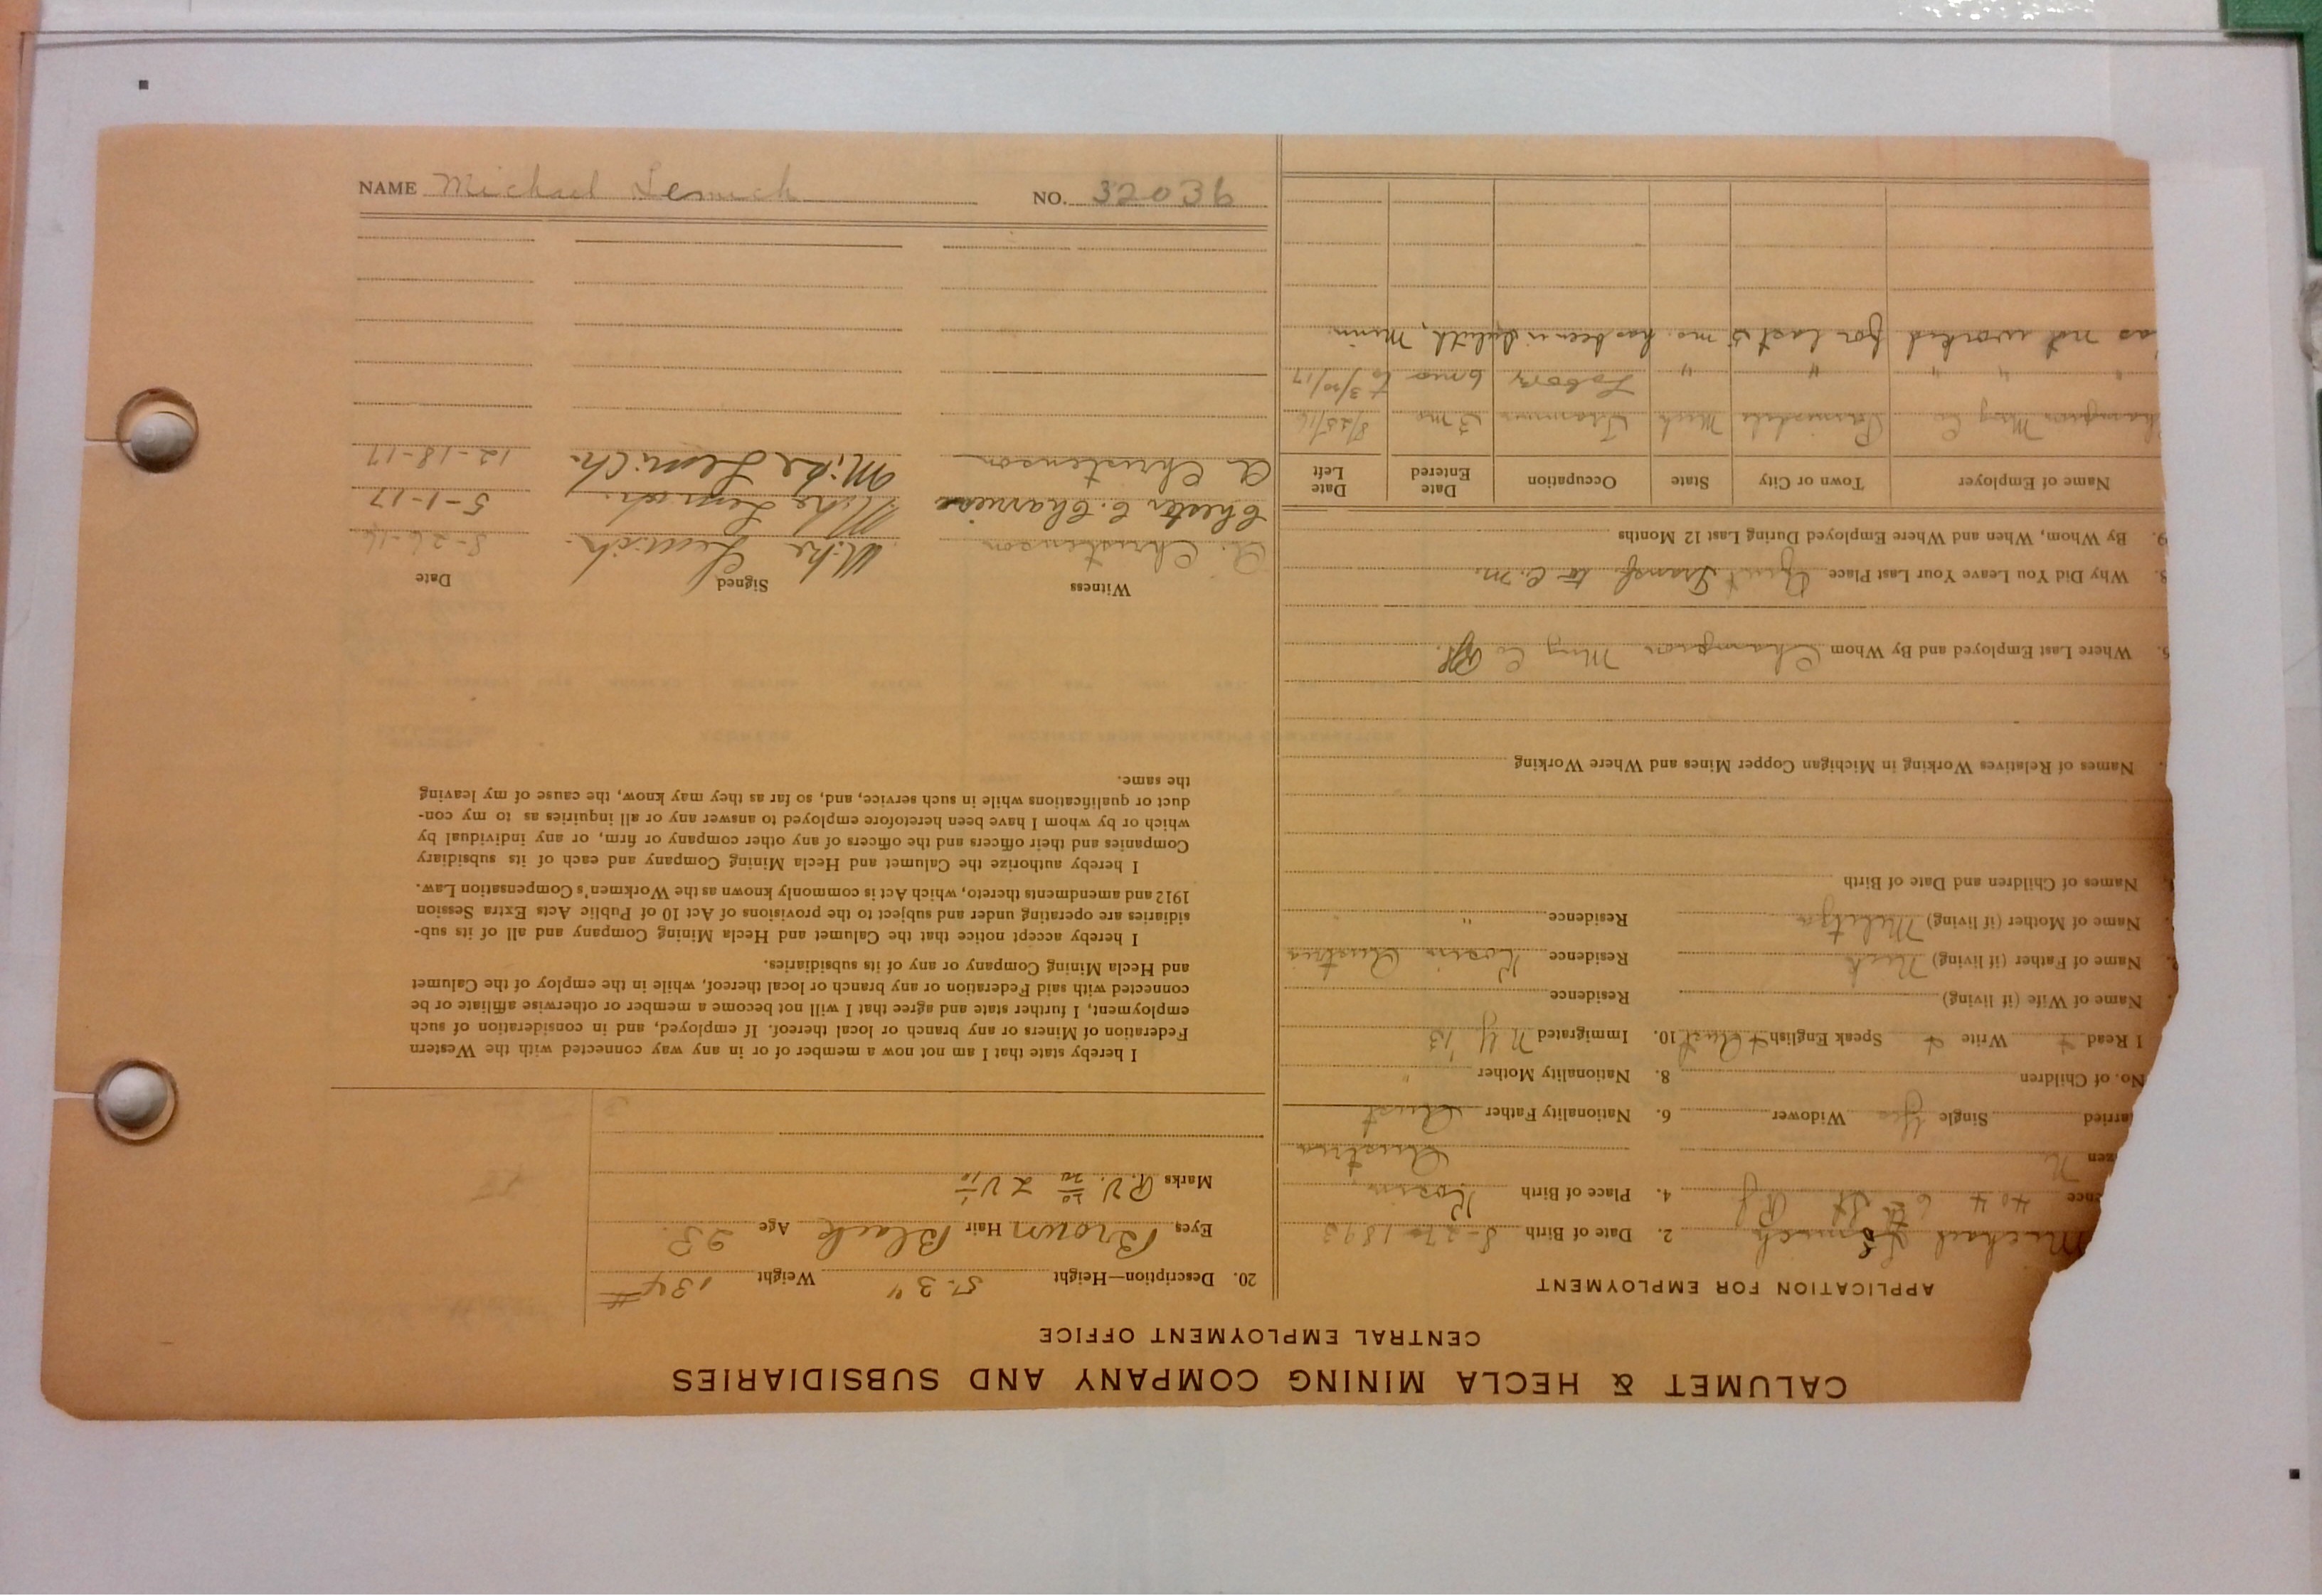 CALUMET & HECLA MINING COMPANY AND SUBSIDIARIES
CENTRAL EMPLOYMENT OFFICE
APPLICATION FOR EMPLOYMENT
Michael Lemich 2. Date of Birth 8-27-1893
ence 404 6th St 4. Place of Birth
zen N Austria
arried Single Yes Widower 6. Nationality Father Aust
No. of Children 8. Nationality Mother "
I Read + Write + Speak English + Aust 10. Immigrated N Y '13
Name of Wife (if living) Residence
Name of Father (if living) Nick Residence Austria
Name of Mother (if living) Residence "
Names of Children and Date of Birth
Names of Relatives Working in Michigan Copper Mines and Where Working
Where Last Employed and By Whom Champion Mng Co
Why Did You Leave Your Last Place Quit Transf. to C. M.
9. By Whom, When and Where Employed During Last 12 Months
Name of Employer Town or City State Occupation Date Entered Date Left
hampion Mng Co Painsdale Mich Trammer 3 mo 8/25/16
" " " " " Labor 6 mo to 3/20/17
as not worked for last 5 mo. has been in Duluth, Minn.
20. Description—Height 5-3" Weight 134 #
Eyes Brown Hair Black Age 23
Marks R.V. 20/20 L V
I hereby state that I am not now a member of or in any way connected with the Western
Federation of Miners or any branch or local thereof. If employed, and in consideration of such
employment, I further state and agree that I will not become a member or otherwise affiliate or be
connected with said Federation or any branch or local thereof, while in the employ of the Calumet
and Hecla Mining Company or any of its subsidiaries.
I hereby accept notice that the Calumet and Hecla Mining Company and all of its sub-
sidiaries are operating under and subject to the provisions of Act 10 of Public Acts Extra Session
1912 and amendments thereto, which Act is commonly known as the Workmen's Compensation Law.
I hereby authorize the Calumet and Hecla Mining Company and each of its subsidiary
Companies and their officers and the officers of any other company or firm, or any individual by
which or by whom I have been heretofore employed to answer any or all inquiries as to my con-
duct or qualifications while in such service, and, so far as they may know, the cause of my leaving
the same.
Witness Signed Date
A. Christenson Mike Lemich. 5-26-16
Chester C. Mike Lemich. 5-1-17
A Christenson Mike Lemich. 12-18-17
NAME Michael Lemich NO. 32036